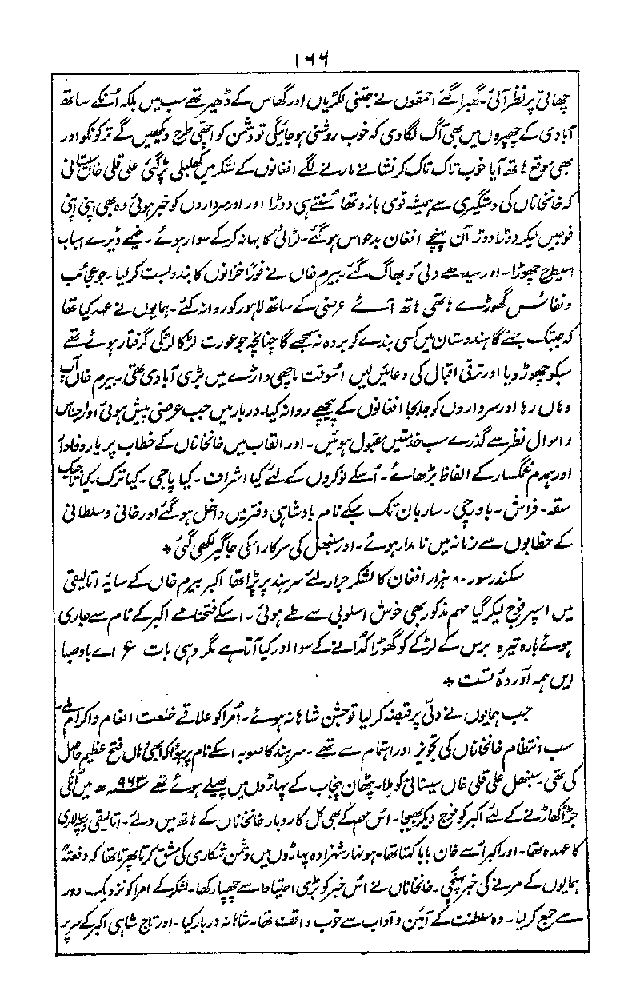 ۱۶۶
چھاتی پر نظر آئی۔ گھبرا گئے احمقوں نے جتنی لکڑیاں اور گھاس کے ڈھیر تھے سب میں بلکہ اُنکے ساتھ
آبادی کے چھپروں میں بھی آگ لگا دی کہ خوب روشنی ہو جائیگی تو دشمن کو اچھی طرح دیکھیں گے ترکونکو اور
بھی موقع ہاتھ آیا خوب تاک تاک کر نشانے مارنے لگے افغانوں کے لشکر میں کھلبلی پڑگئی علی قلی خاں سیستانی
کہ خانخاناں کی دستگیری سے ہمیشہ قوی بازو تھا سُنتے ہی دوڑا اور اور سرداروں کو خبر ہوئی وہ بھی اپنی اپنی
فوجیں لیکر دوڑا دوڑ آن پہنچے افغان بدحواس ہوگئے۔ لڑائی کا بہانہ کرکے سوار ہوئے۔ خیمے ڈیرے اسباب
اسیطرح چھوڑا۔ اور سیدھے دلی کو بھاگ گئے بیرم خاں نے فوراً خزانوں کا بندوبست کر لیا۔ جو عجائب
و نفائس گھوڑے ہاتھی ہاتھ آئے عرضی کے ساتھ لاہور کو روانہ کئے۔ ہمایوں نے عہد کیا تھا
کہ جبتک جئے گا ہندوستان میں کسی بندے کو بردہ نہ سمجھے گا چنانچہ جو عورت لڑکا لڑکی گرفتار ہوئے تھے
سبکو چھوڑ دیا اور ترقی اقبال کی دعائیں لیں اُسوقت ماچھی واڑے میں بڑی آبادی تھی۔ بیرم خاں آپ
وہاں رہا اور سرداروں کو جابجا افغانوں کے پیچھے روانہ کیا۔ دربار میں جب عرضی پیش ہوئی اور اجناس
و اموال نظر سے گذرے سب خدمتیں مقبول ہوئیں۔ اور القاب میں خانخاناں کے خطاب پر یار وفادار
اور ہمدم غمگسار کے الفاظ بڑھائے۔ اُسکے نوکروں کے لئے کیا اشراف۔ کیا پاجی۔ کیا ترک کیا تاجیک
سقہ۔ فراش۔ باورچی۔ ساربان تک سبکے نام بادشاہی دفتر میں داخل ہوگئے اور خانی و سلطانی
کے خطابوں سے زمانہ میں نامدار ہوئے۔ اور سنبھل کی سرکار اُسکی جاگیر لکھی گئی *
سکندر سور ۸۰ ہزار افغان کا لشکر جرار لئے سرہند پر پڑا تھا اکبر بیرم خاں کے سایہ اتالیقی
میں اسپر فوج لیکر گیا مہم مذکور بھی خوش اسلوبی سے طے ہوئی۔ اسکے فتحنامے اکبر کے نام سے جاری
ہوئے بارہ تیرہ برس کے لڑکے کو گھوڑا کُدانے کے سوا اور کیا آتا ہے مگر وہی بات ع اے باد صبا
ایں ہمہ آوردۂ تست *
جب ہمایوں نے دلی پر قبضہ کر لیا تو جشن شاہانہ ہوئے۔ اُمرا کو علاقے خلعت انعام و اکرام ملے
سب انتظام خانخاناں کی تجویز اور اہتمام سے تھے۔ سرہند کا صوبہ اسکے نام پر ہوا کہ ابھی وہاں فتح عظیم حاصل
کی تھی۔ سنبھل علی قلی خاں سیستانی کو ملا۔ پٹھان پنجاب کے پہاڑوں میں پھیلے ہوئے تھے ۹۶۳ھ میں اُنکی
جڑ اُکھاڑنے کے لئے اکبر کو فوج دیکر بھیجا۔ اس مہم کے بھی کُل کاروبار خانخاناں کے ہاتھ میں دئے۔ اتالیقی و سپہسالاری
کا عہدہ تھا۔ اور اکبر اُسے خان بابا کہتا تھا۔ ہونہار شہزادہ پہاڑوں میں دشمن شکاری کی مشق کرتا پھرتا تھا کہ دفعتہً
ہمایوں کے مرنے کی خبر پہنچی۔ خانخاناں نے اس خبر کو بڑی احتیاط سے چھپا رکھا۔ لشکر کے امرا کو نزدیک دور
سے جمع کر لیا۔ وہ سلطنت کے آئین و آداب سے خوب واقف تھا۔ شاہانہ دربار کیا۔ اور تاج شاہی اکبر کے سر پر